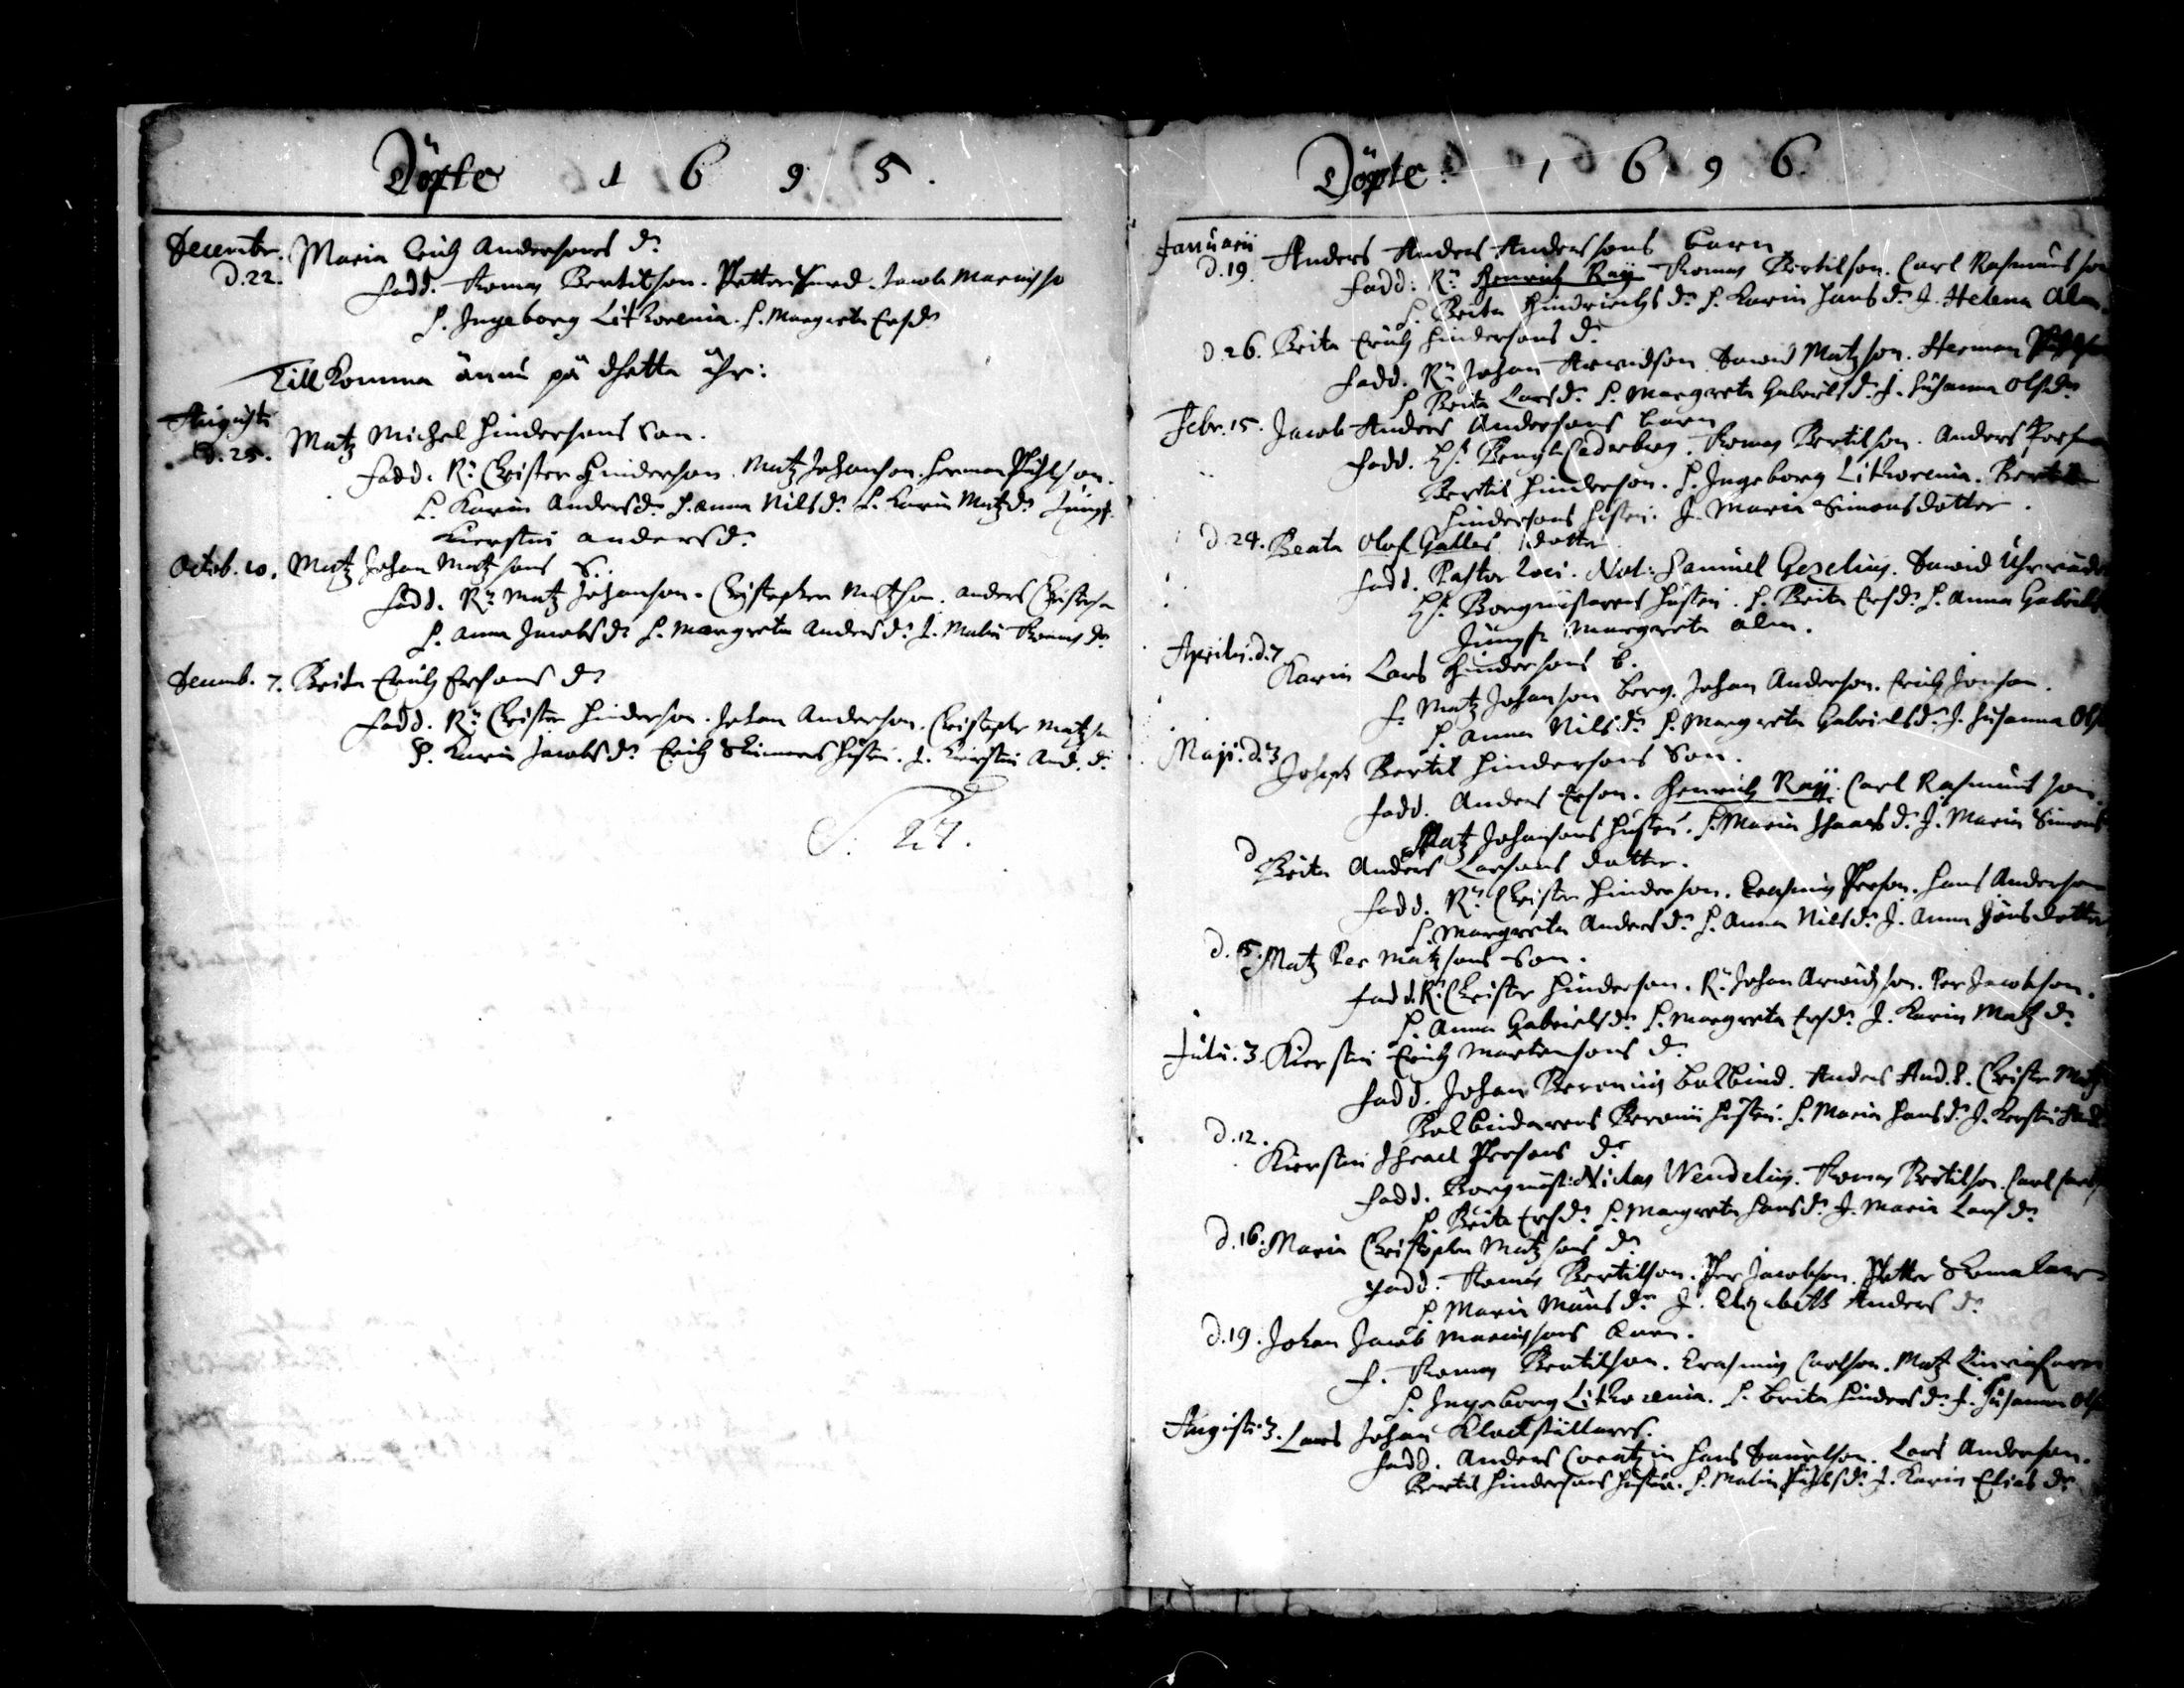 Döpte 1 6 9 5.
Decembr. Maria Erich Andersons d:
d. 22.
Fadd. Thomas Bertilson. Petter Jacob
H. Ingeborg Lithovenia. H. Margreta Ersd:
Till Komma ännu på dhetta åhr:
Augusti
d. 25. Matz Michel Hindersons Son.
Fadd. R: Christer Hinderson. Matz Johanson. Herman Påhlson.
H. Karin Andersd: H. Anna Nilsd: H. Karin Matzd: Jungf.
Kierstin Andersd:
Octob. 10. Matz Johan Matzsons S.
Fadd. R: Matz Johanson. Christopher Matzson. Anders
H. Anna Jacobsd: H. Margreta Andersd: J. Malin Thomasd:
Decemb. 7. Brita Erich Ersons d:
Fadd. R: Christer Hinderson. Johan Anderson. Christopher Matzson
H. Karin Jacobsd: Erich Skinnars Hustru. J. Kierstin And. d:
S. 27.
Döpte: 1 6 9 6.
Januarii
d. 19. Anders Anders Anderssons barn
Fadd: R: Henrich Raij Thomas Bertilson. Carl Rasmusson
H. Brita Hindrichsd: H. Karin Hansd: J. Helena Alm.
d. 26. Brita Erich Hindersons d:
Fadd. R: Johan Arwidson David Matzson. Herman
H. Brita Larsd: H. Margreta Gabrielsd: J. Susanna Olsd:
Febr. 15. Jacob Anders Andersons barn
Fadd. Hr Bengt Cederberg. Thomas Bertilson. Anders
Bertil Hinderson. H. Ingeborg Lithovenia. Bertil
Hindersons Hustru. J. Maria Simonsdotter.
d. 24. Beata Olof Galles dotter
Fadd. Pastor Loci. Not: Samuel Gezelius. David
Hr Borgmästarens Hustru. H. Brita Ersd: H. Anna Gabriels
Jungf. Margreta Alm.
Aprilis. d. 7
Karin Lars Hindersons b.
F. Matz Johanson Berg. Johan Anderson. Erich Jonson.
H. Anna Nilsd: H. Margreta Gabrielsd: J. Susanna Ols
Maji. d. 3
Joseph Bertil Hindersons Son.
Fadd. Anders Erson. Henrich Raij. Carl Rasmusson.
Matz Johansons Hustru. H. Maria d: J. Maria Simons
d
Brita Anders Larsons dotter.
Fadd. R: Christer Hinderson. Erasmus Person. Hans Anderson
H. Margreta Andersd: H. Anna Nilsd: J. Anna Jönsdotter
d. 5. Matz Per Matzsons Son.
Fadd. R: Christer Hinderson. R: Johan Arwidson. Per Jacobson.
H. Anna Gabrielsd: H. Margreta Ersd: J. Karin Matzd:
Julii. 3. Kierstin Erich Martensons d:
Fadd. Johan Beronius Balbind. Anders And. S. Christer Matz
Balbindarens Beronii Hustru. H. Maria Hansd: J. Kerstin
d. 12.
Kierstin Israel Persons d:
Fadd. Borgmäst: Niclas Wendelius. Thomas Bertilson. Carl
H. Brita Ersd: H. Margreta Hansd: J. Maria Larsd:
d. 16. Maria Christopher Matzsons d:
Fadd. Thomas Bertilson. Per Jacobson. Petter Skomakare
H. Maria Månsd: J. Elizabeth Anders d:
d. 19. Johan Jacob barn.
F. Thomas Bertilson. Erasmus Carlson. Matz
H. Ingeborg Lithovenia. H. Brita Hindersd: J. Susanna Ols
Augusti. 3. Lars Johan Klockställares.
Fadd. Anders Hans Danielson. Lars Anderson.
Bertil Hindersons Hustru. H. Malin Påhlsd: J. Karin Elias d: